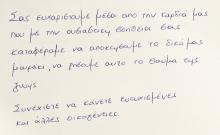 Σας ευχαριστουμε μέσα από την καρδιά μας
που με την ουσιαστική βοήθεια σας
καταφέραμε να αποκτησουμε το δικό μας
μωράκι, να ζησουμε αυτο το θαύμα της
ζωης
Συνεχίστε να κάνετε ευτυχισμένες
και άλλες οικογένειες.